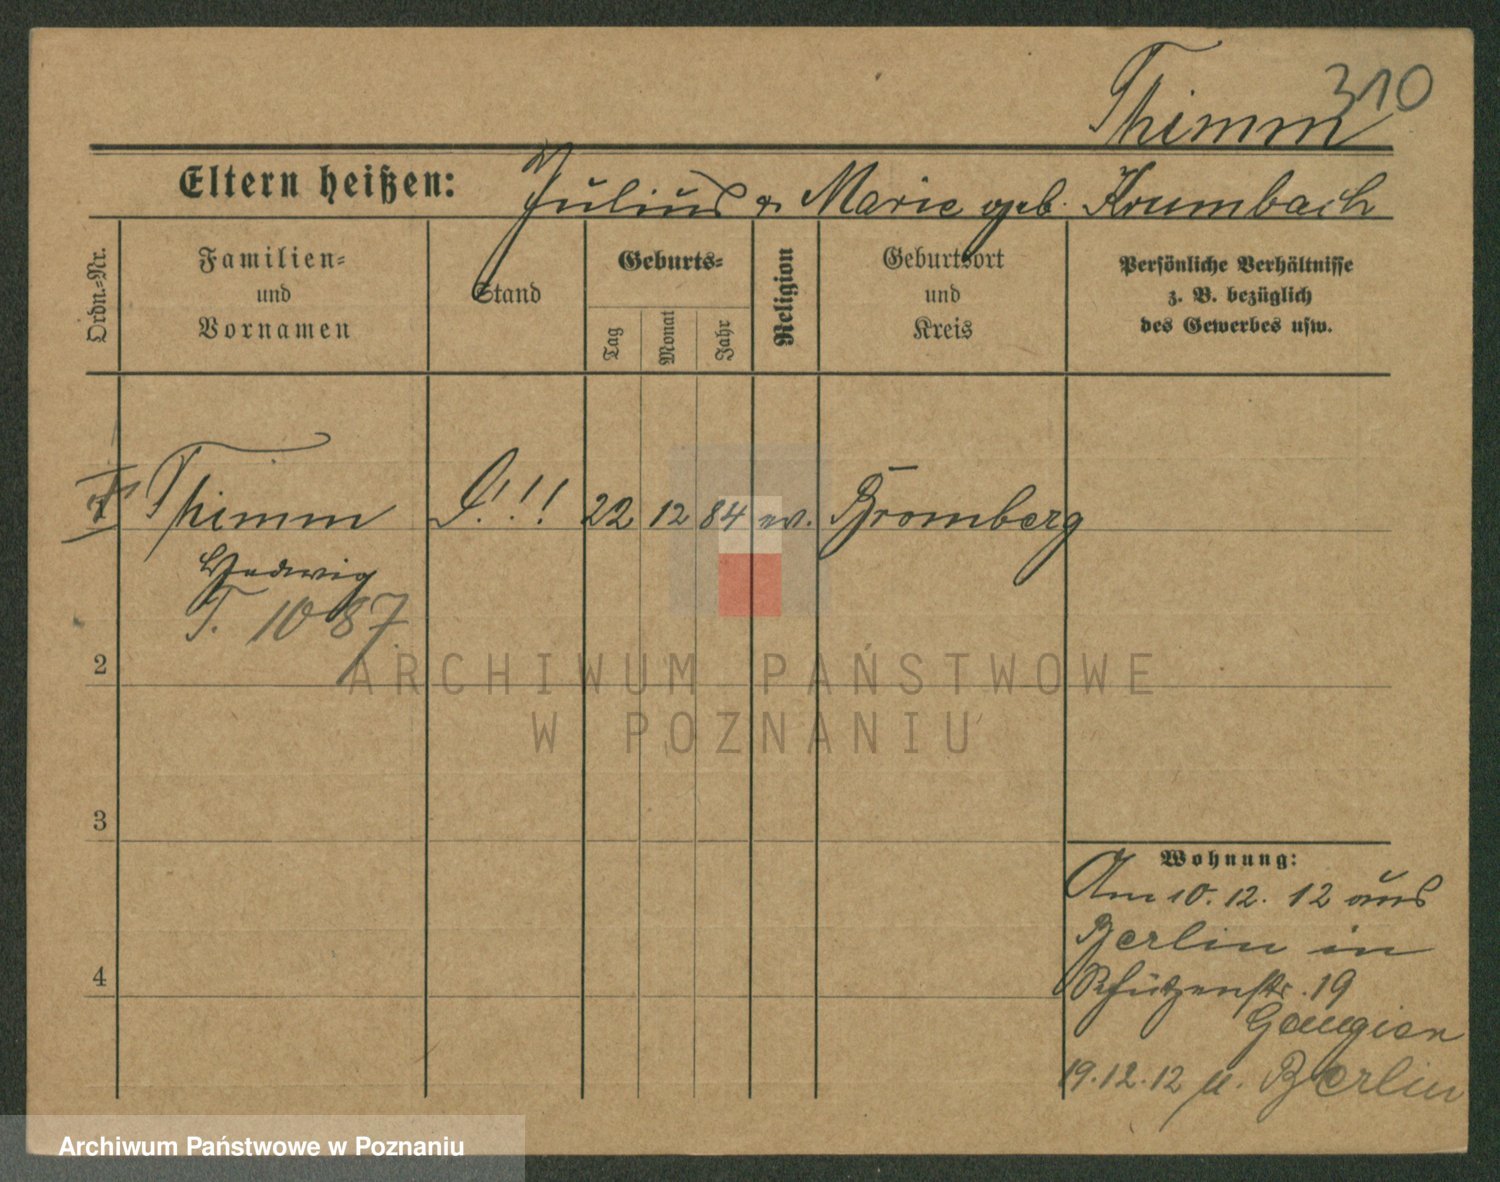 310
Thimm
Eltern heißen: Julius u. Marie geb. Krumbach
Ordn.-Nr.
Familien-
und
Vornamen
Stand
Geburts-
Tag
Monat
Jahr
Religion
Geburtsort
und
Kreis
Persönliche Verhältnisse
z. B. bezüglich
des Gewerbes usw.
Thimm 22 12 84 ev. Bromberg
Hedwig
T. 1087
2
3
4
ARCHIWUM PAŃSTWOWE
W POZNANIU
Wohnung:
Am 10. 12. 12 aus
Berlin in
Schützenstr. 19
19.12.12 n. Berlin
Archiwum Państwowe w Poznaniu